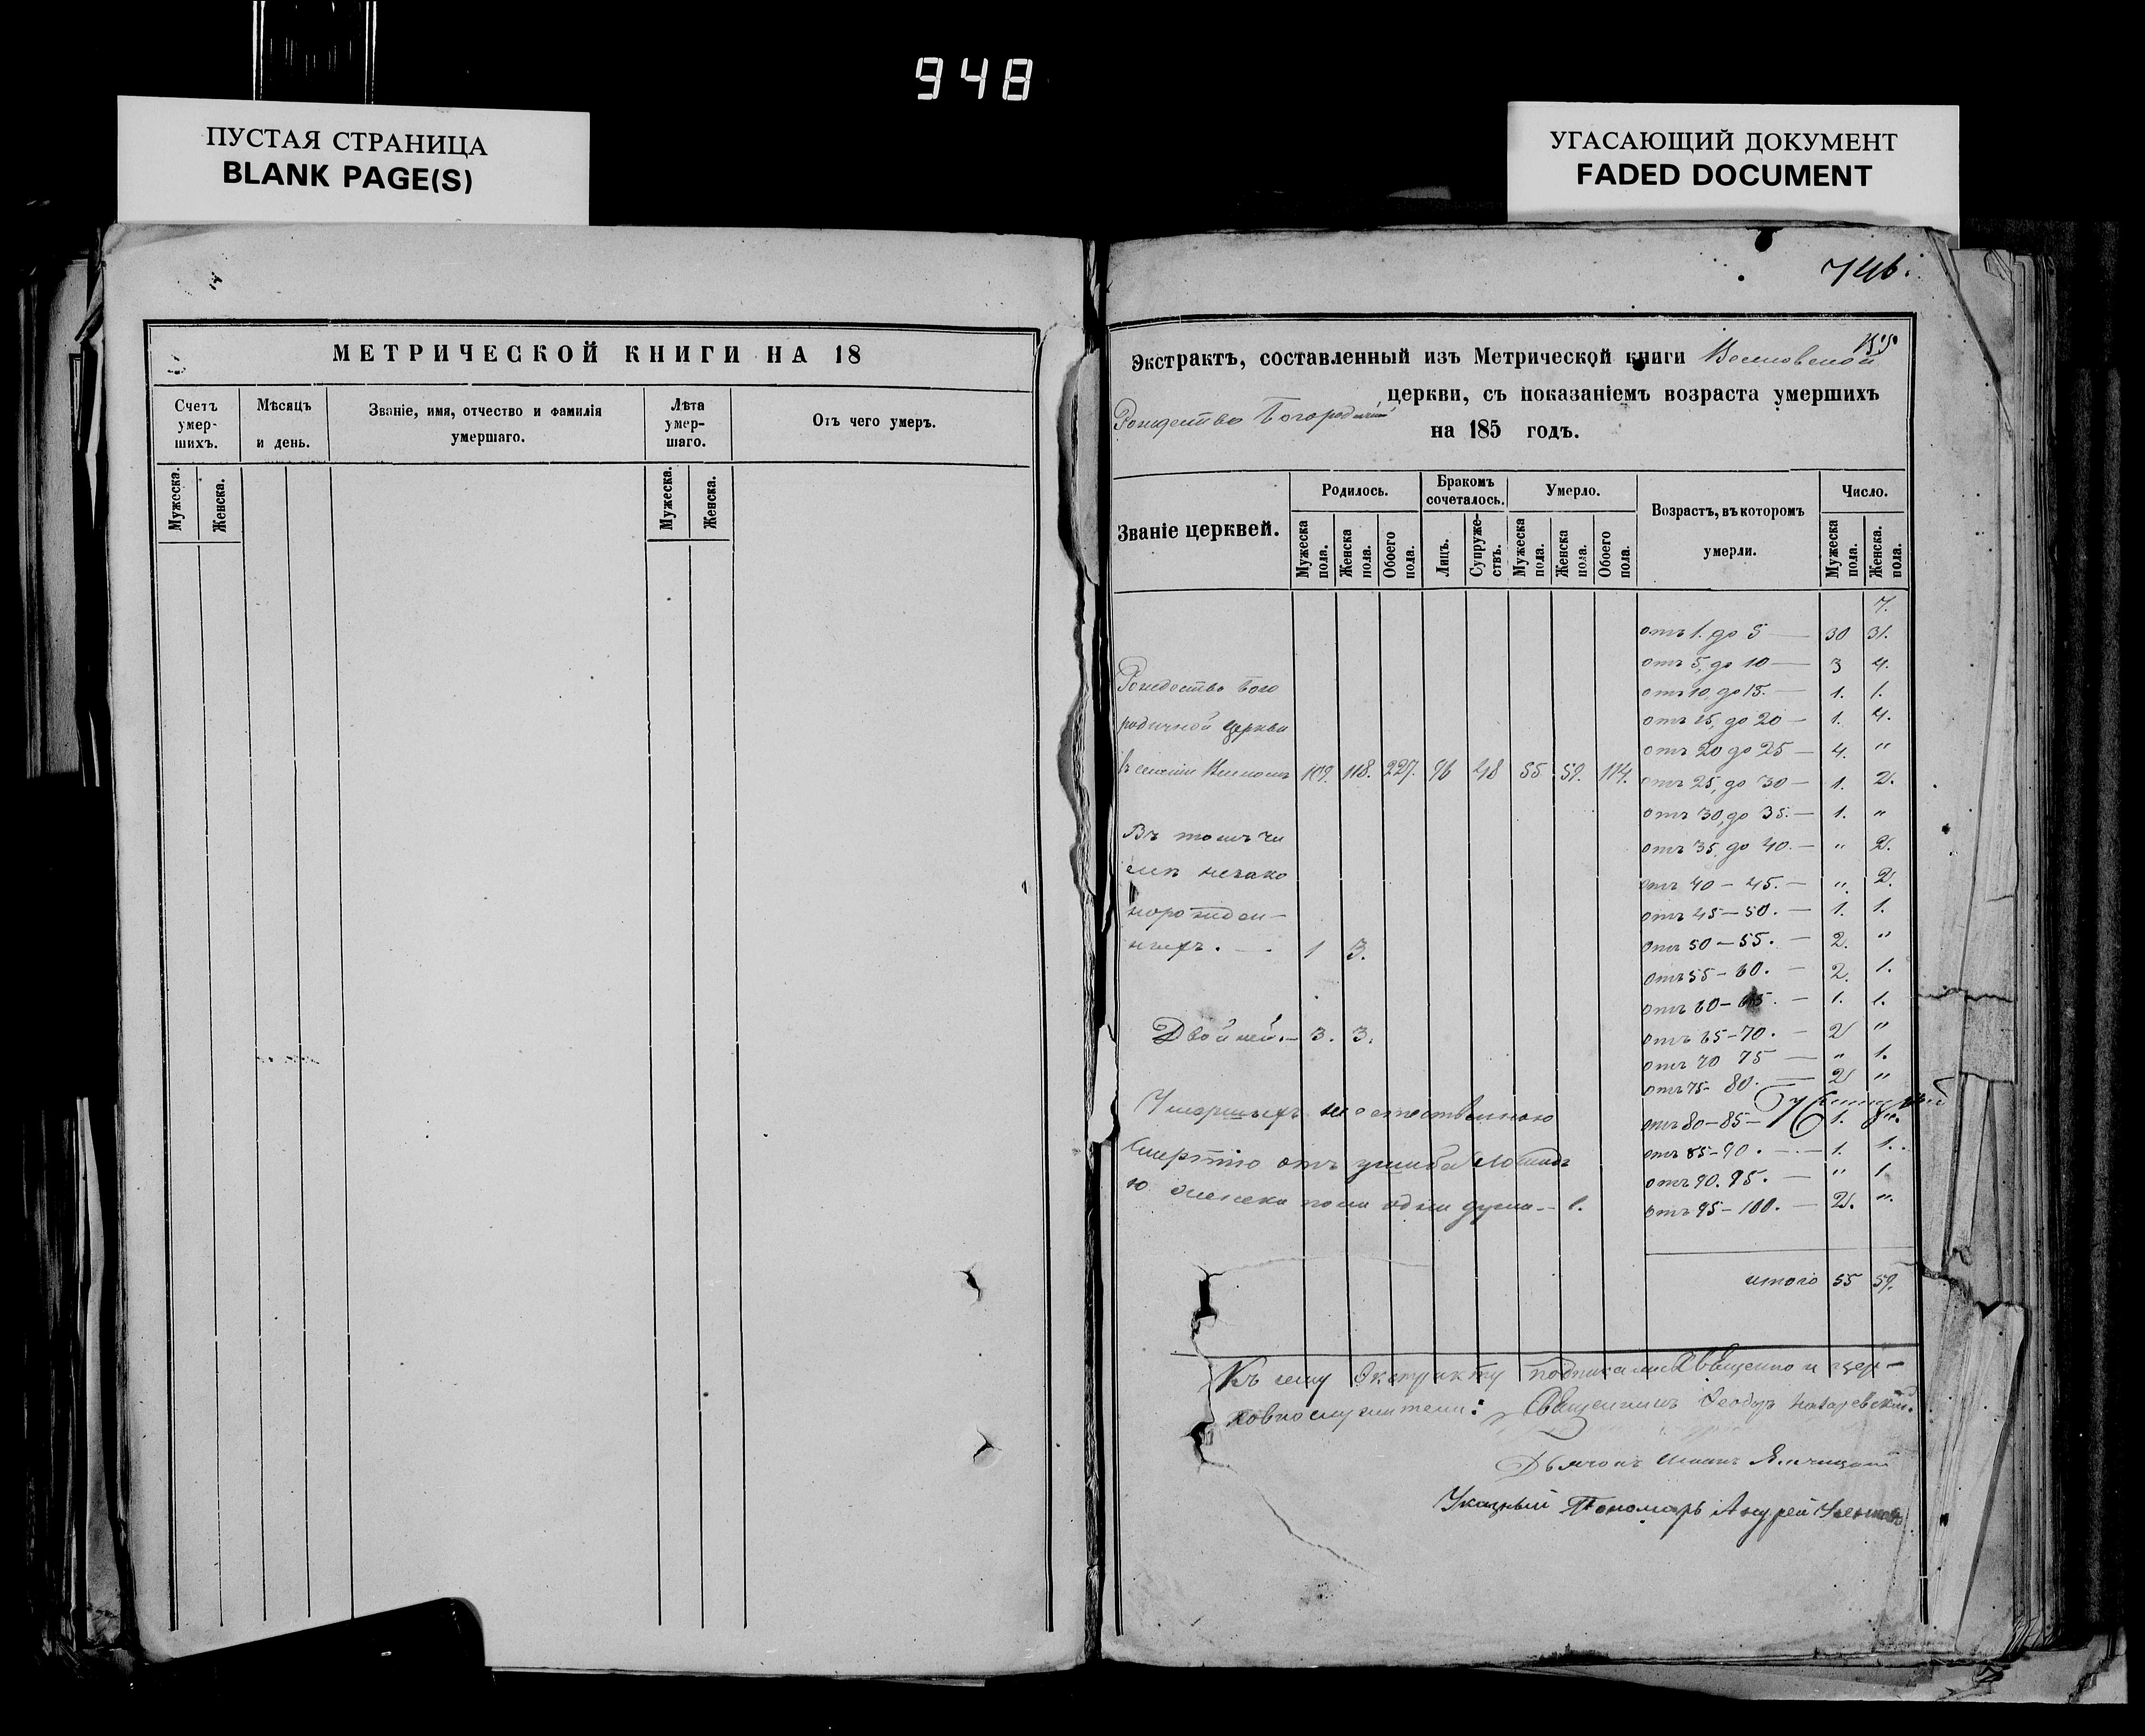 948
ПУСТАЯ СТРАНИЦА
BLANK PAGE(S)
УГАСАЮЩИЙ ДОКУМЕНТ
FADED DOCUMENT
МЕТРИЧЕСКОЙ КНИГИ НА 18
Счетъ умер-шихъ.
Мѣсяцъ и день.
Званіе, имя, отчество и фамилія умершаго.
Лѣта умер-шаго.
Отъ чего умеръ.
Мужеска. Женска. Мужеска. Женска.
746.
Экстрактъ, составленный изъ Метрической книги
Рождество Богородичной церкви, съ показаніемъ возраста умершихъ
на 185 годъ.
Званіе церквей.
Родилось.
Бракомъ сочеталось.
Умерло.
Возрастъ, въ которомъ умерли.
Число.
Мужеска пола. Женска пола. Обоего пола. Лицъ. Супруже-ствъ. Мужеска пола. Женска пола. Обоего пола. Мужеска пола. Женска. пола.
7.
отъ 1. до 5 — 30 31.
отъ 5, до 10 — 3 4.
Рождество Бого
отъ 10, до 15. — 1. 1.
родичной Церкви
отъ 15, до 20 — 1. 4.
отъ 20 до 25 — 4. "
109. 118. 227. 96 48 55 59. 114.
отъ 25, до 30 — 1. 2.
отъ 30, до 35. — 1. "
Въ томъ чи
отъ 35, до 40. — " 2.
слѣ незако
отъ 40 — 45. — " 2.
норожден-
отъ 45 — 50. — 1. 1.
ныхъ. — 1 3.
отъ 50 — 55. — 2. "
отъ 55 — 60. — 2. 1.
отъ 60 — 65. — 1. 1.
Двойней. — 3. 3.
отъ 65 — 70. — 2 "
отъ 70 75 — " 1.
отъ 75 — 80. — 2 "
Умершихъ не естественною
отъ 80 — 85 — 1.
смертію отъ ушиба лошадь
отъ 85 — 90. — 1. 1.
ю женска пола одна душа — 1.
отъ 90. 95. — " 1.
отъ 95 — 100. — 2. "
итого 55 59.
Къ сему Экстракту подписались Священно и цер-
ковнослужители: Священникъ Феодоръ
Дьячокъ Иоаннъ
Указный Пономарь Андрей